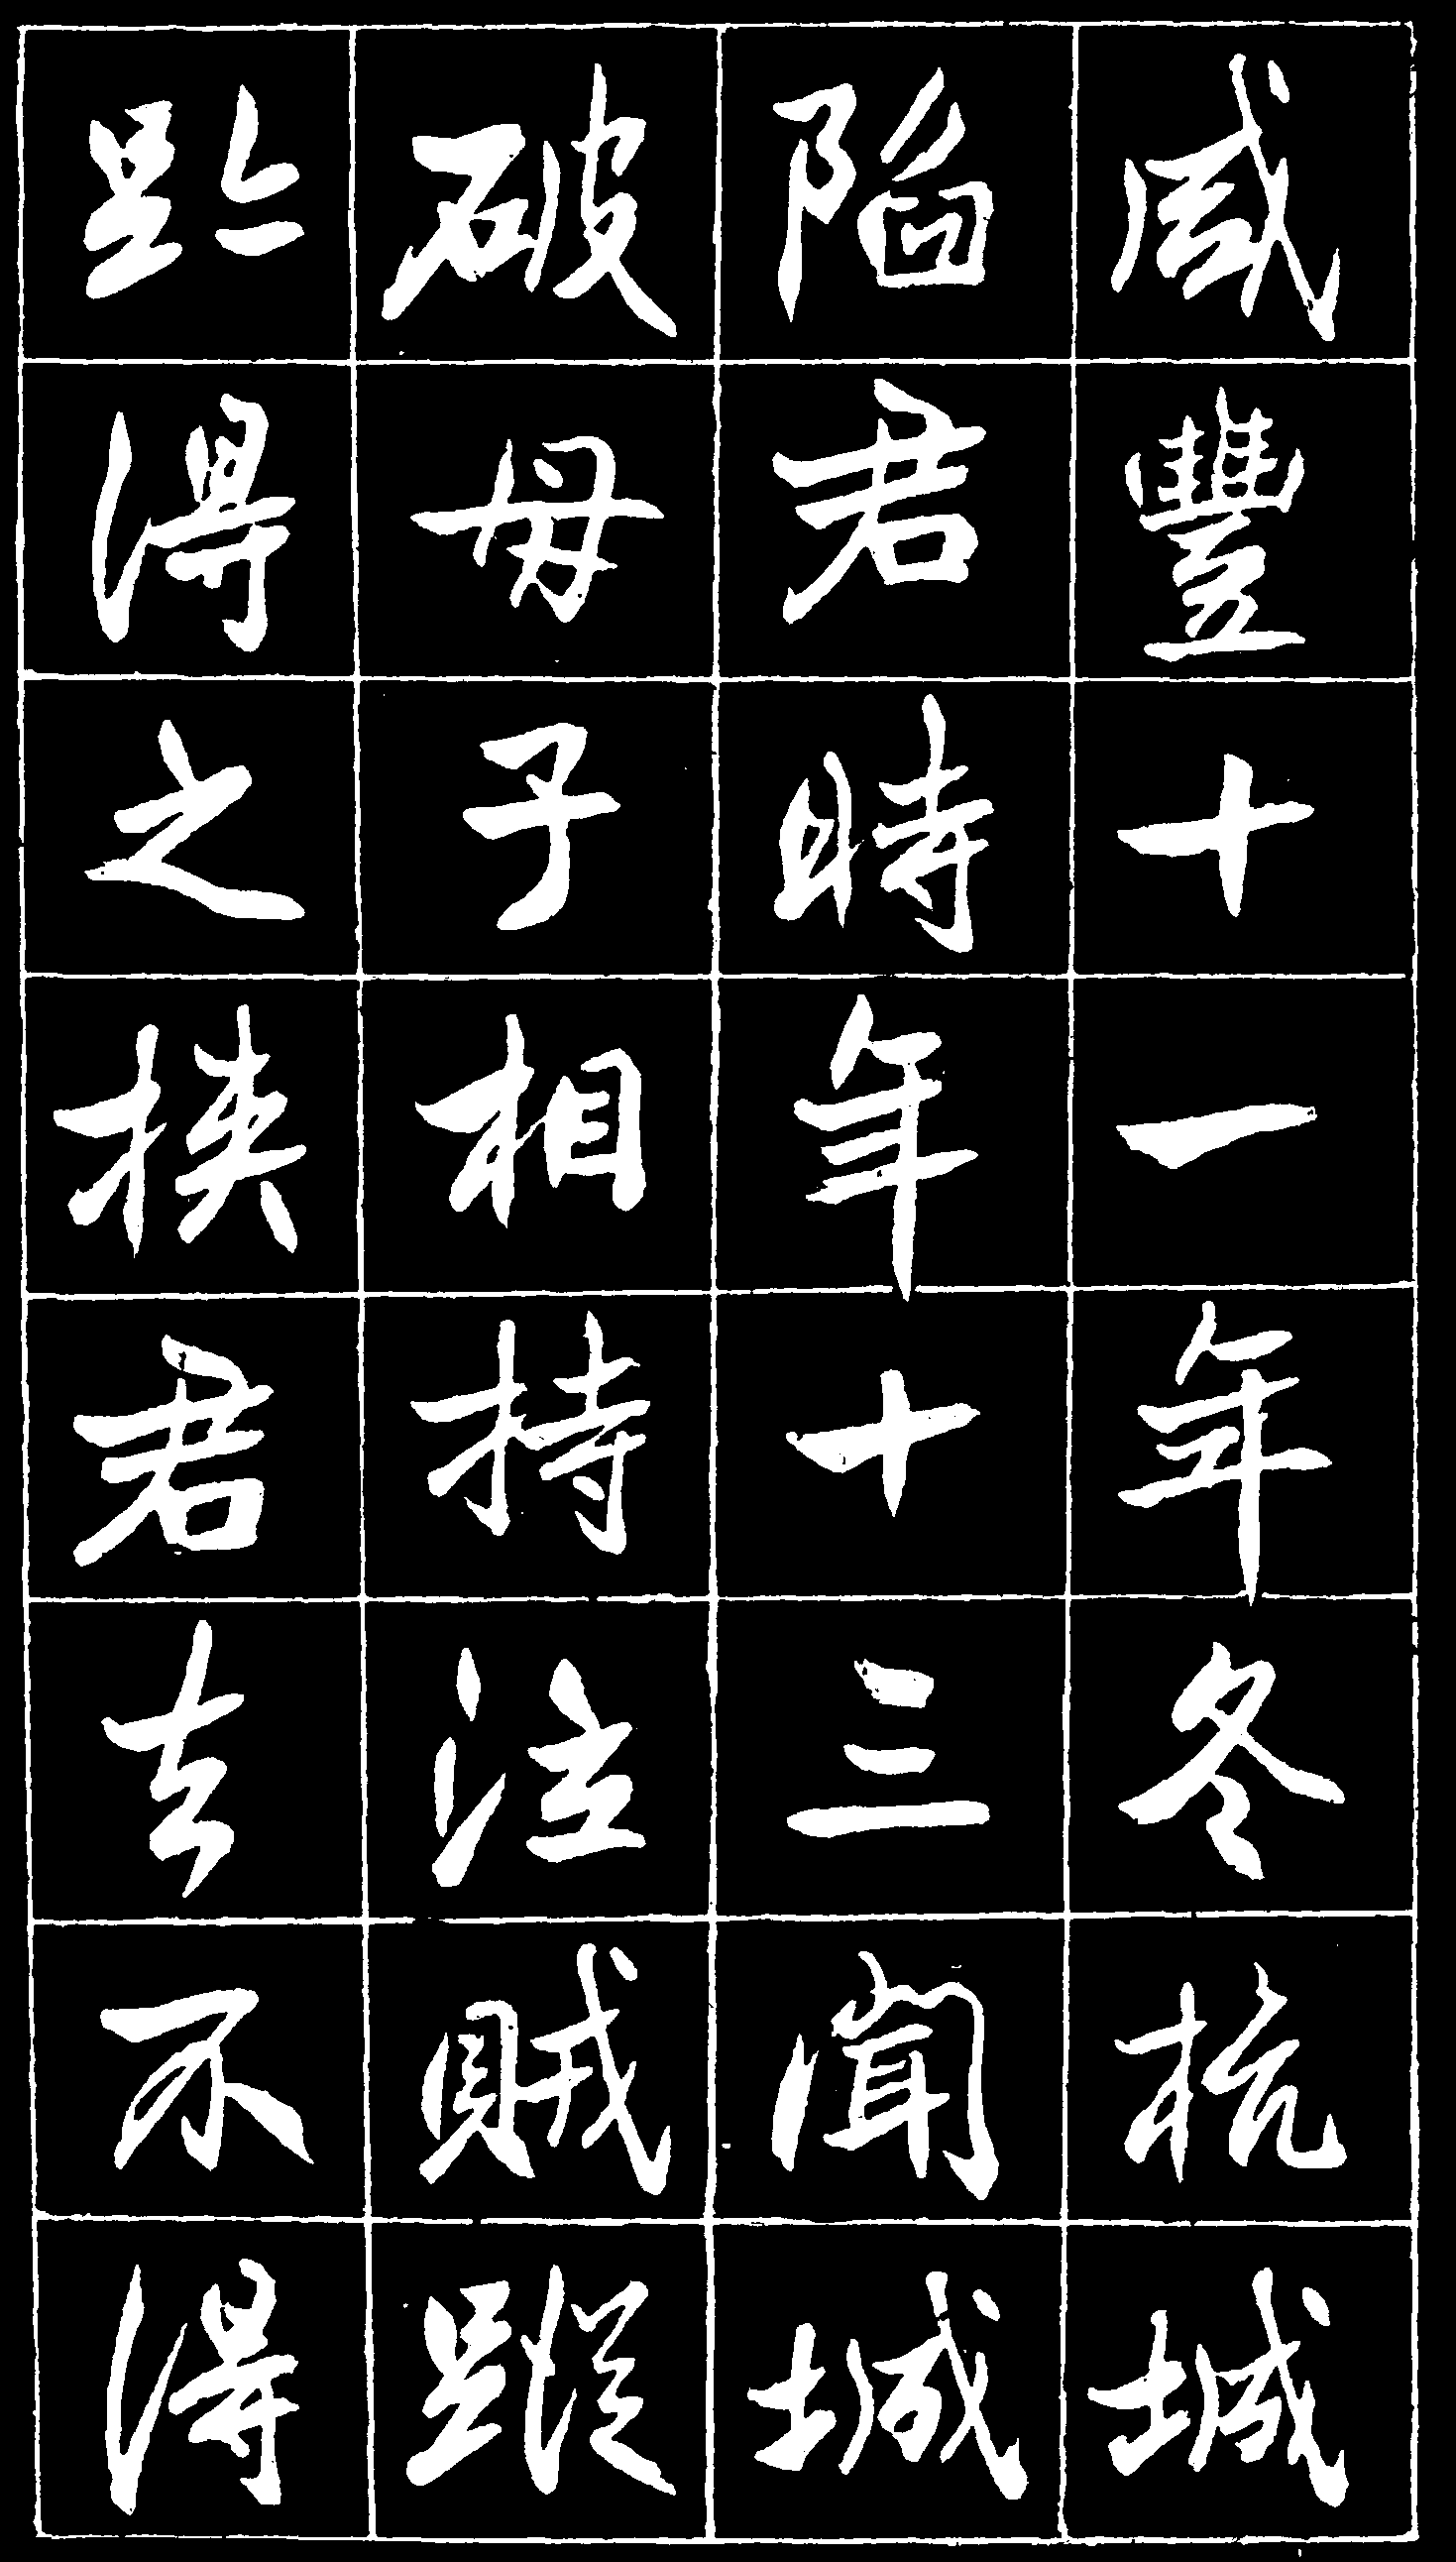 咸豐十一年冬杭城
陷君時年十三聞城
破母子相持泣賊蹤
跡得之挟君去不得